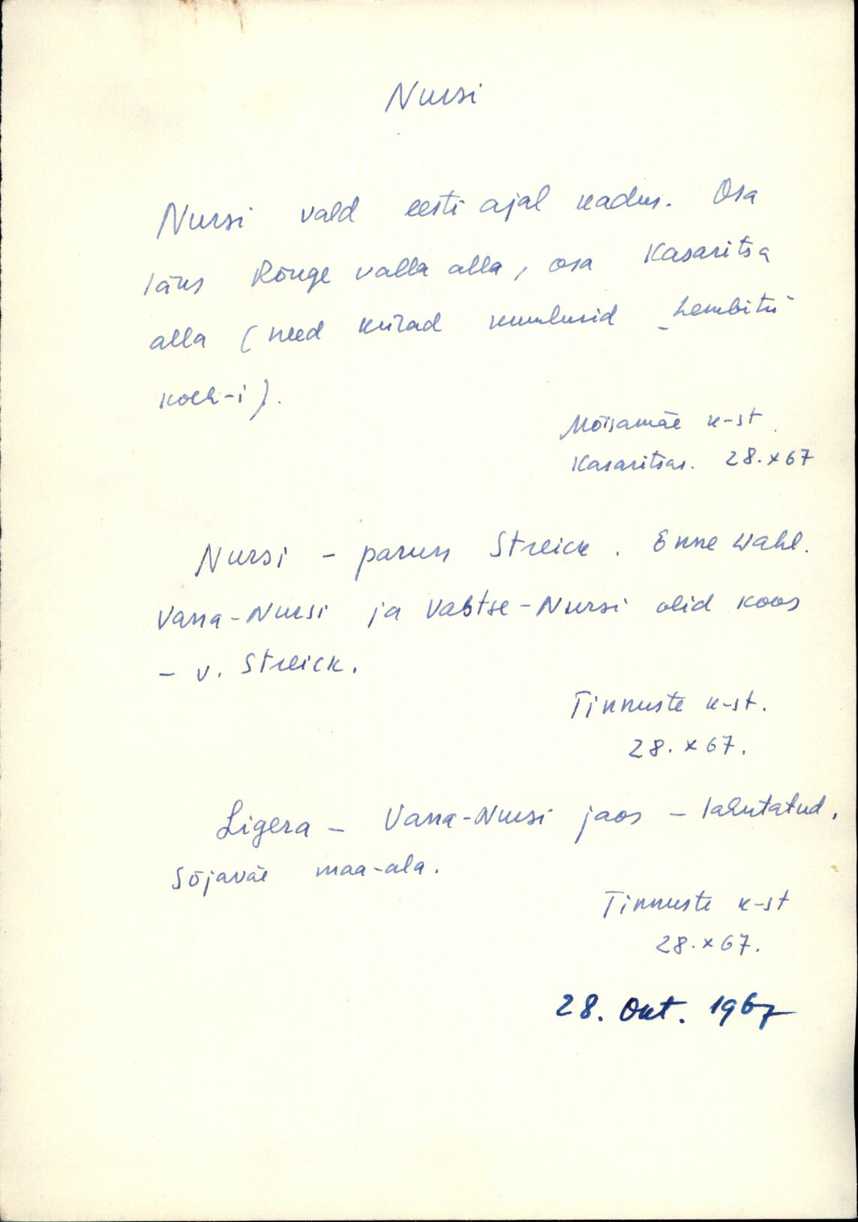 Nursi
Nursi vald eesti ajal kadus. Osa
läks Rõuge valla alla, osa Kasaritsa
alla (need külad kuulusid „Lembitu"
kolh-i).
Mõisamäe k-st.
Kasaritsas. 28.X 67
Nursi – parun Streick. Enne Wahl.
Vana-Nursi ja Vastse-Nursi olid koos
– v. Streick.
Tinnuste k-st.
28.X 67.
Ligera – Vana-Nursi jaos – lahutatud,
Sõjaväe maa-ala.
Tinnuste k-st
28.X 67.
28. Okt. 1967